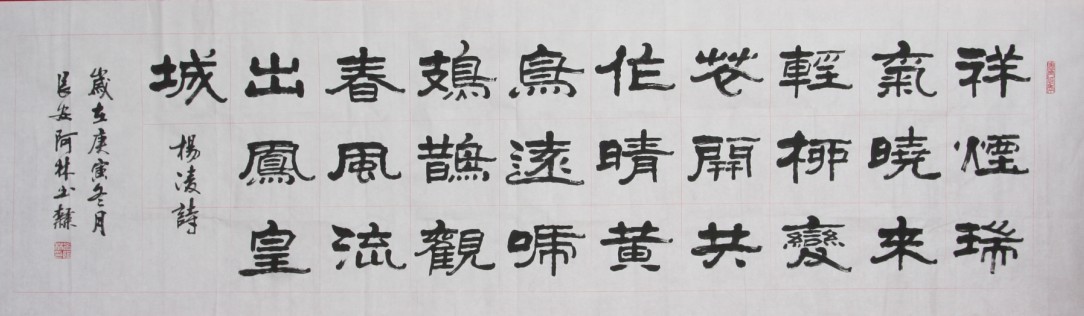 祥煙瑞
氣曉來
輕柳變
花開共
作晴黃
鳥遠啼
鳷鵲觀
春風流
出鳳皇
城
楊凌詩
歲在庚寅冬月
長安阿林书隸